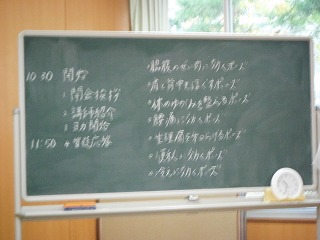 10:30 開始
1 開会挨拶
2 講師紹介
3 ヨガ開始
11:50 4 質疑応答
・脇腹のぜい肉に効くポーズ
・肩と背中をほぐすポーズ
・体のゆがみを整えるポーズ
・腰痛に効くポーズ
・生理痛をやわらげるポーズ
・便秘に効くポーズ
・冷えに効くポーズ